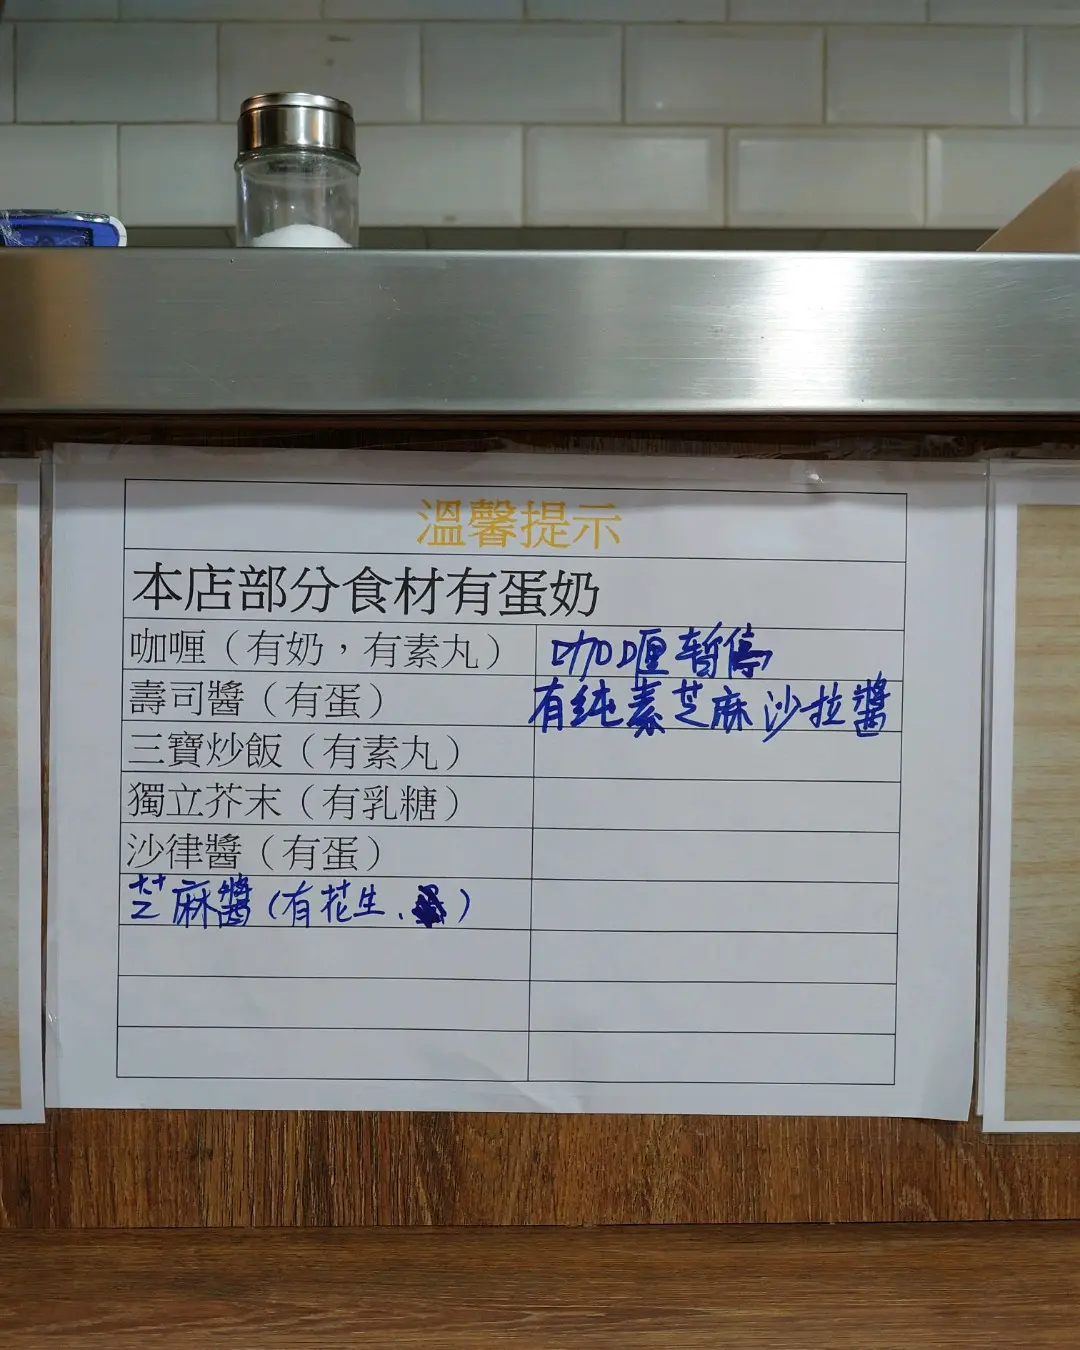 溫馨提示
本店部分食材有蛋奶
咖喱（有奶，有素丸） 咖喱暫停
壽司醬（有蛋） 有纯素芝麻沙拉醬
三寶炒飯（有素丸）
獨立芥末（有乳糖）
沙律醬（有蛋）
芝麻醬（有花生、）